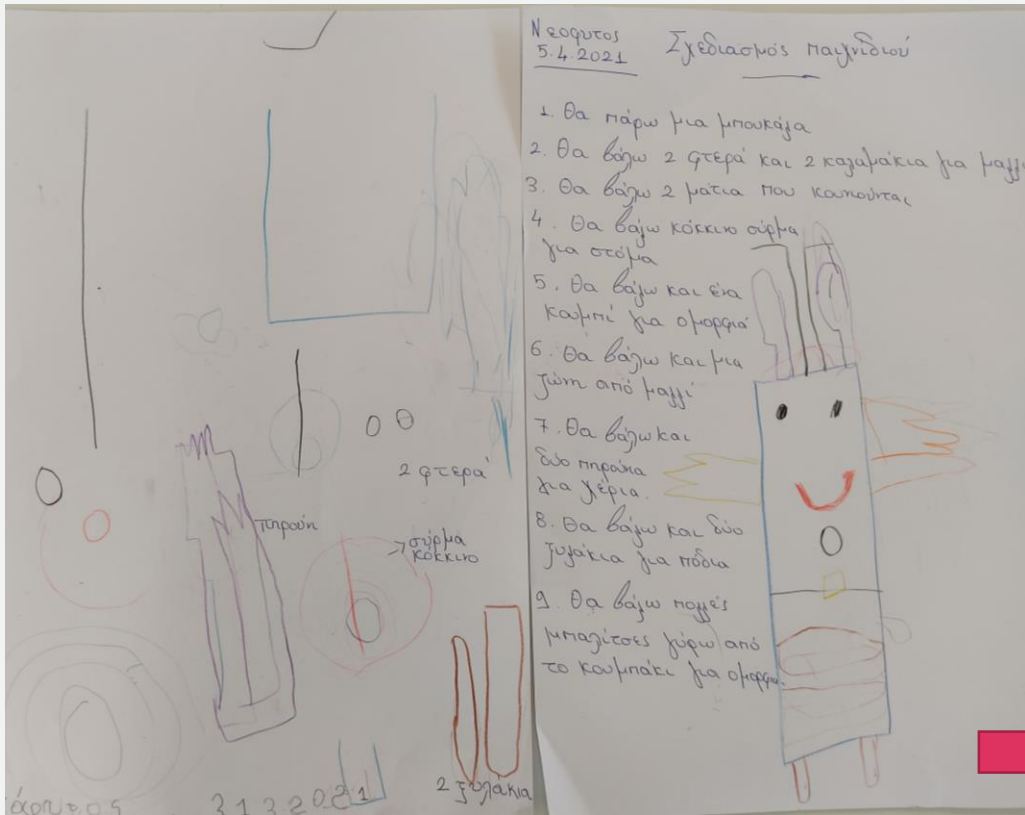 Νεόφυτος
5.4.2021
Σχεδιασμός παιχνιδιού
1. Θα πάρω μια μπουκάλα
2. Θα βάλω 2 φτερά και 2 καλαμάκια για μαλλι
3. Θα βάλω 2 μάτια που κουνούνται
4. Θα βάλω κόκκινο σύρμα
για στόμα
5. Θα βάλω και ένα
κουμπί για ομορφιά
6. Θα βάλω και μια
ζώνη από μαλλί
7. Θα βάλω και
δύο πηρούνια
για χέρια.
8. Θα βάλω και δύο
ξυλάκια για πόδια
9. Θα βάλω πολλές
μπαλίτσες γύρω από
το κουμπάκι για ομορφιά.
2 φτερά
πηρούνι
σύρμα
κόκκινο
2 ξυλάκια